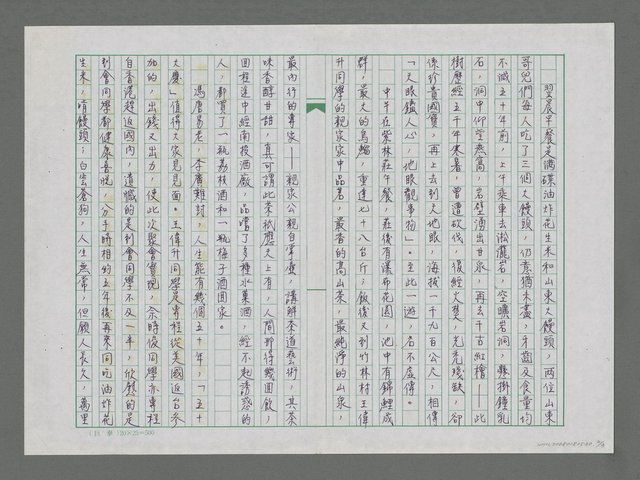 翌晨早餐天滿碟油炸花生米和山東大饅頭,兩位山東
哥兒們每人吃了三個大饅頭,仍意猶未盡,牙齒及食量均
不減五十年前,上午乘車去淞瀧岩,空曠岩洞,懸掛鐘乳
石,洞中仰望燕窩,岩壁湧出甘泉,再去千古紅檜——此
樹歷經五千年寒暑,曾遭砍伐,後經火焚,光禿殘缺,卻
係珍貴國寶,再上去到天地眼,海拔一千九百公尺,相傳
「天眼鑑人心,地眼觀事物」。至此一遊,名不虛傳。
中午在紫林莊午餐,莊後有瀑布花園,池中有錦鯉成
群,最大的烏鰡,重達七十八台斤,飯後又到竹林村王偉
升同學的親家家中品茗,最香的高山茶,最純淨的山泉,
最內行的專家——親家公親自督壺,講解茶道藝術,其茶
味香醇甘甜,真可謂此茶祇應天上有,人間那得幾回飲,
回程途中經南投酒廠,品嚐了多種水果酒,經不起誘惑的
人,都買了一瓶荔枝酒和一瓶梅子酒回家。
馮唐易老,李廣難封,人生能有幾個五十年,「五十
大慶」值得大家見見面。王偉升同學是專程從美國返台參
加的,出錢又出力,使此次聚會實現,余時俊同學亦專程
自香港趕返國內,遺憾的是到會同學不及一半,欣慰的是
到會同學都健康喜悅,分手時相約五年後再來同吃油炸花
生米,啃饅頭;白雲蒼狗,人生無常,但願人長久,萬里
20×25=500